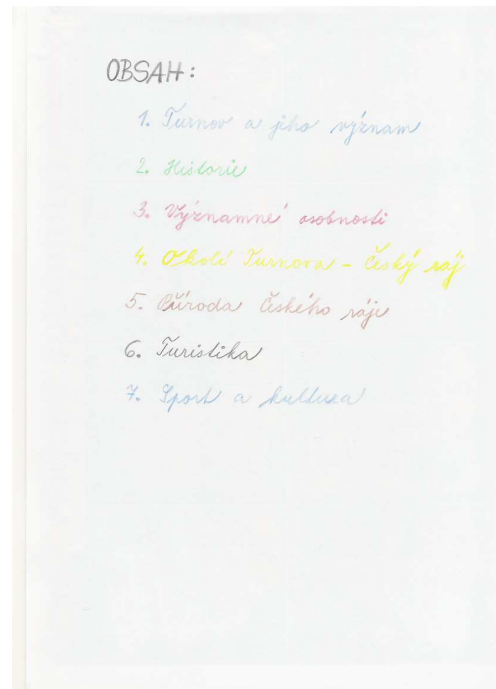 OBSAH:
1. Turnov a jeho význam
2. Historie
3. Významné osobnosti
4. Okolí Turnova - Český ráj
5. Příroda Českého ráje
6. Turistika
7. Sport a kultura